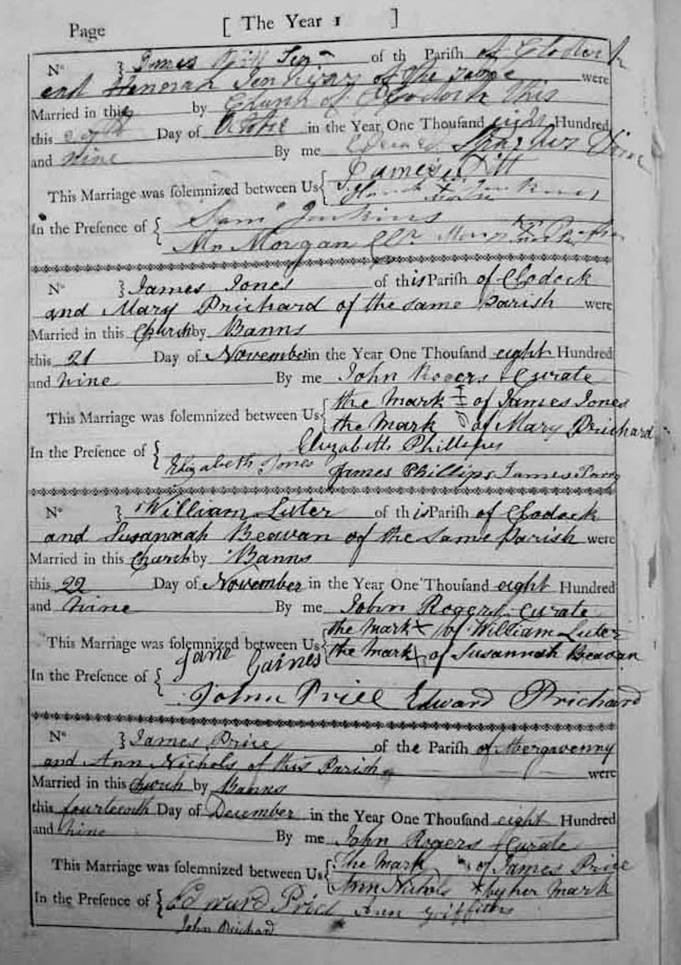 Page [ The Year 1 ]
No } James Pitt of th Parish of Clodock
and Hannah Jenkins of the same were
Married in this by Church of Clodock this
this Day of in the Year One Thousand eight Hundred
and nine By me
This Marriage was solemnized between Us { James Pitt
In the Presence of { Saml Jenkins
Morgan
No } James Jones of this Parish of Clodock
and Mary Prichard of the same Parish were
Married in this Church by Banns
this 21 Day of November in the Year One Thousand eight Hundred
and nine By me John Rogers Curate
This Marriage was solemnized between Us { the mark of James Jones
the mark of Mary Prichard
In the Presence of { Elizabeth Phillips
Elizabeth Jones James Phillips James
No } William Luter of this Parish of Clodock
and Susannah Beavan of the same Parish were
Married in this Church by Banns
this 22 Day of November in the Year One Thousand eight Hundred
and nine By me John Rogers Curate
This Marriage was solemnized between Us { the mark x of William Luter
the mark x of Susannah Beavan
In the Presence of { Jane Gaines
John Price Edward Prichard
No } James Price of the Parish of Abergavenny
and Ann Nichols of this Parish were
Married in this Church by Banns
this fourteenth Day of December in the Year One Thousand eight Hundred
and nine By me John Rogers Curate
This Marriage was solemnized between Us { The Mark of James Price
Ann Nichols x by her Mark
In the Presence of { Edward Price Ann Griffiths
John Prichard